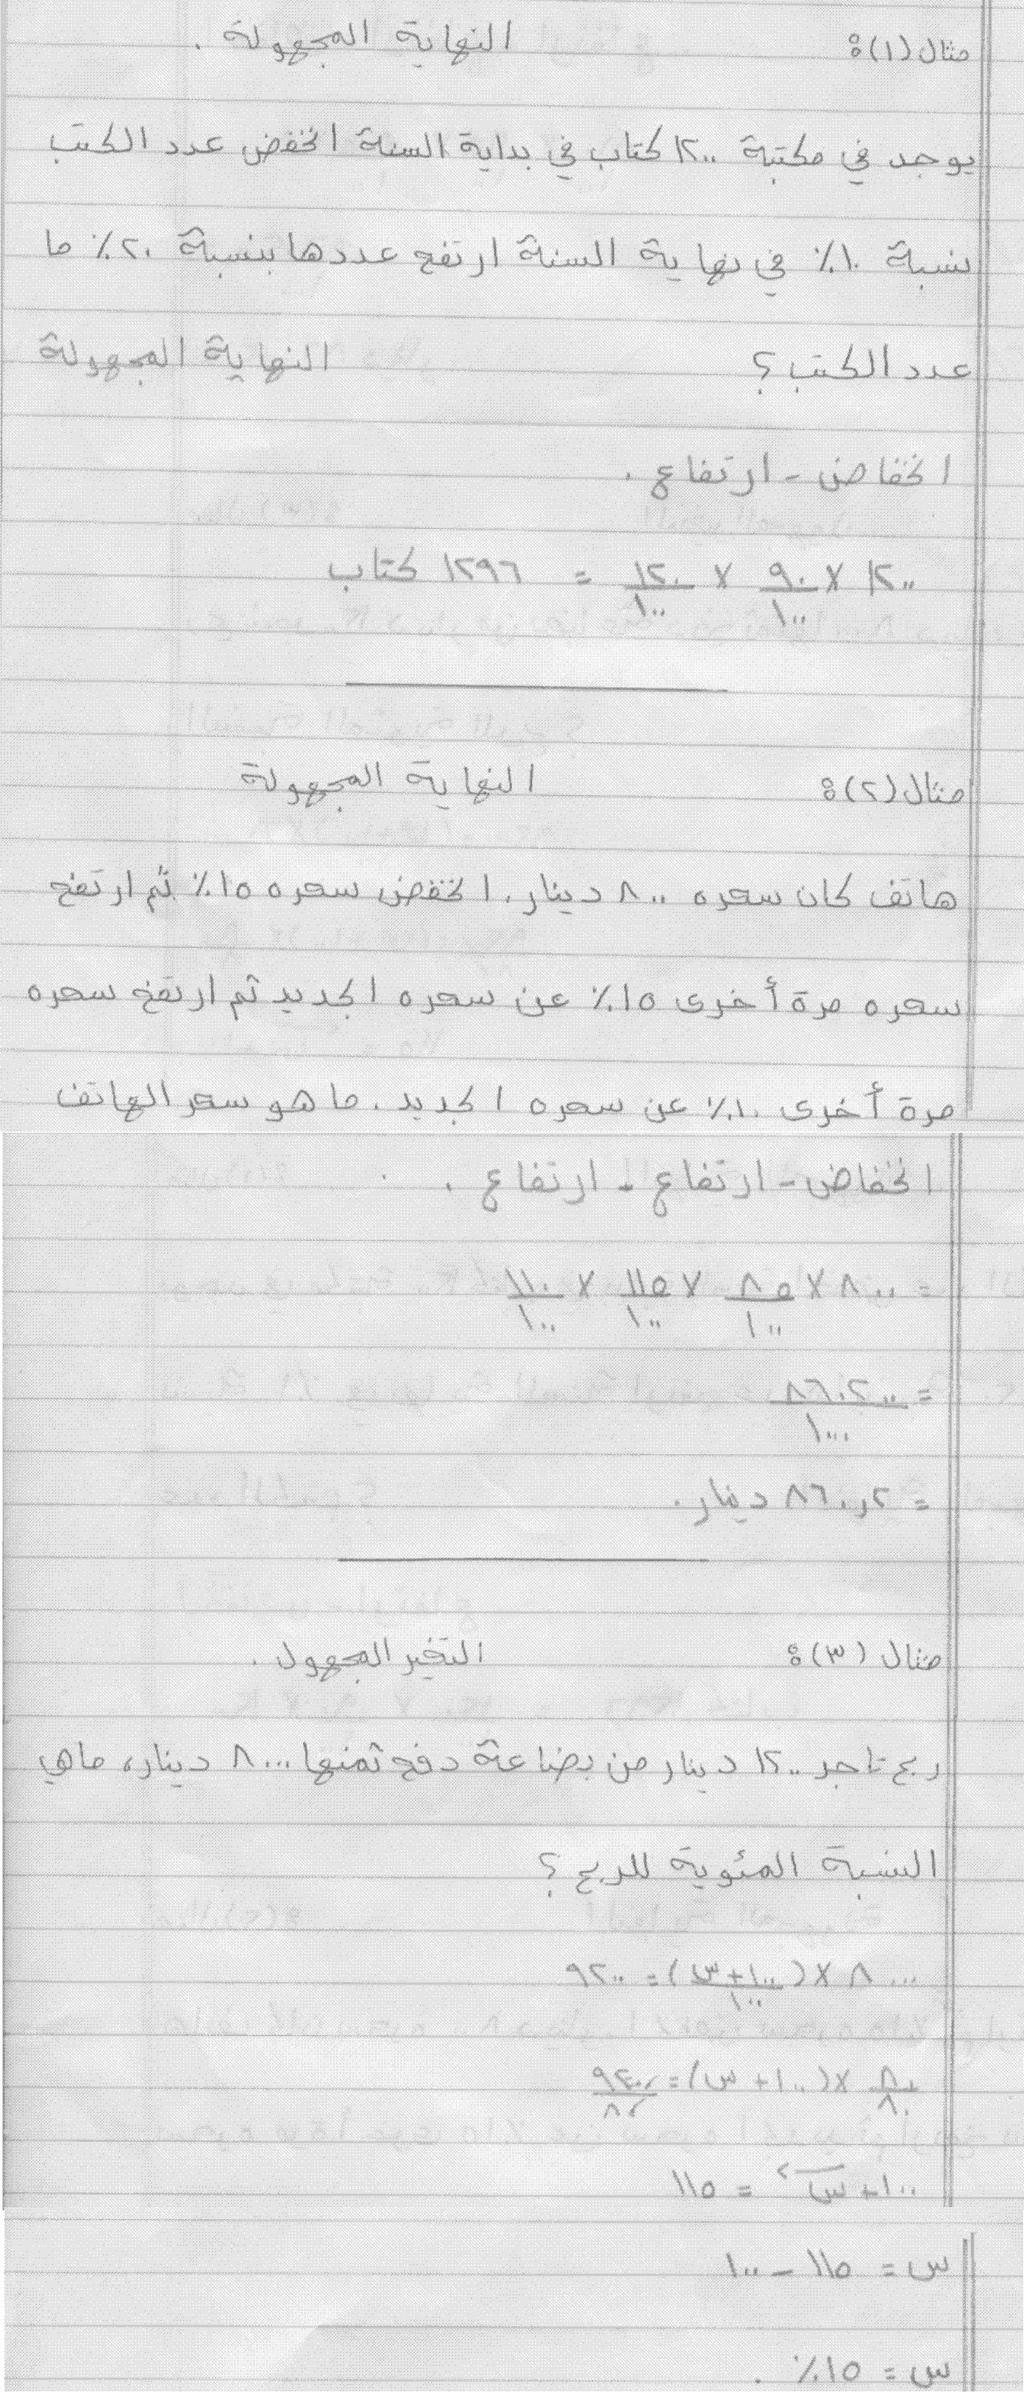 مثال (١): النهاية المجهولة .
يوجد في مكتبة ١٢٠٠ كتاب في بداية السنة انخفض عدد الكتب
بنسبة ١٠٪ في نهاية السنة ارتفع عددها بنسبة ٢٠٪ ما
عدد الكتب ؟ النهاية المجهولة
انخفاض - ارتفاع .
١٢٠٠ × ٩٠/١٠٠ × ١٢٠/١٠٠ = ١٢٩٦ كتاب
مثال (٢): النهاية المجهولة
هاتف كان سعره ٨٠٠ دينار . انخفض سعره ١٥٪ ثم ارتفع
سعره مرة أخرى ١٥٪ عن سعره الجديد ثم ارتفع سعره
مرة أخرى ١٠٪ عن سعره الجديد . ما هو سعر الهاتف
انخفاض - ارتفاع - ارتفاع .
= ٨٠٠ × ٨٥/١٠٠ × ١١٥/١٠٠ × ١١٠/١٠٠
= ٨٦٠٢٠٠/١٠٠٠
= ٨٦٠,٢ دينار .
مثال (٣): التغير المجهول .
ربح تاجر ١٢٠٠ دينار من بضاعة دفع ثمنها ٨٠٠٠ دينار، ما هي
النسبة المئوية للربح ؟
٨٠٠٠ × (١٠٠+س/١٠٠) = ٩٢٠٠
٨٠/٨٠ × (١٠٠ + س) = ٩٢٠٠/٨٠
١٠٠ + س = ١١٥
س = ١١٥ - ١٠٠
س = ١٥٪ .